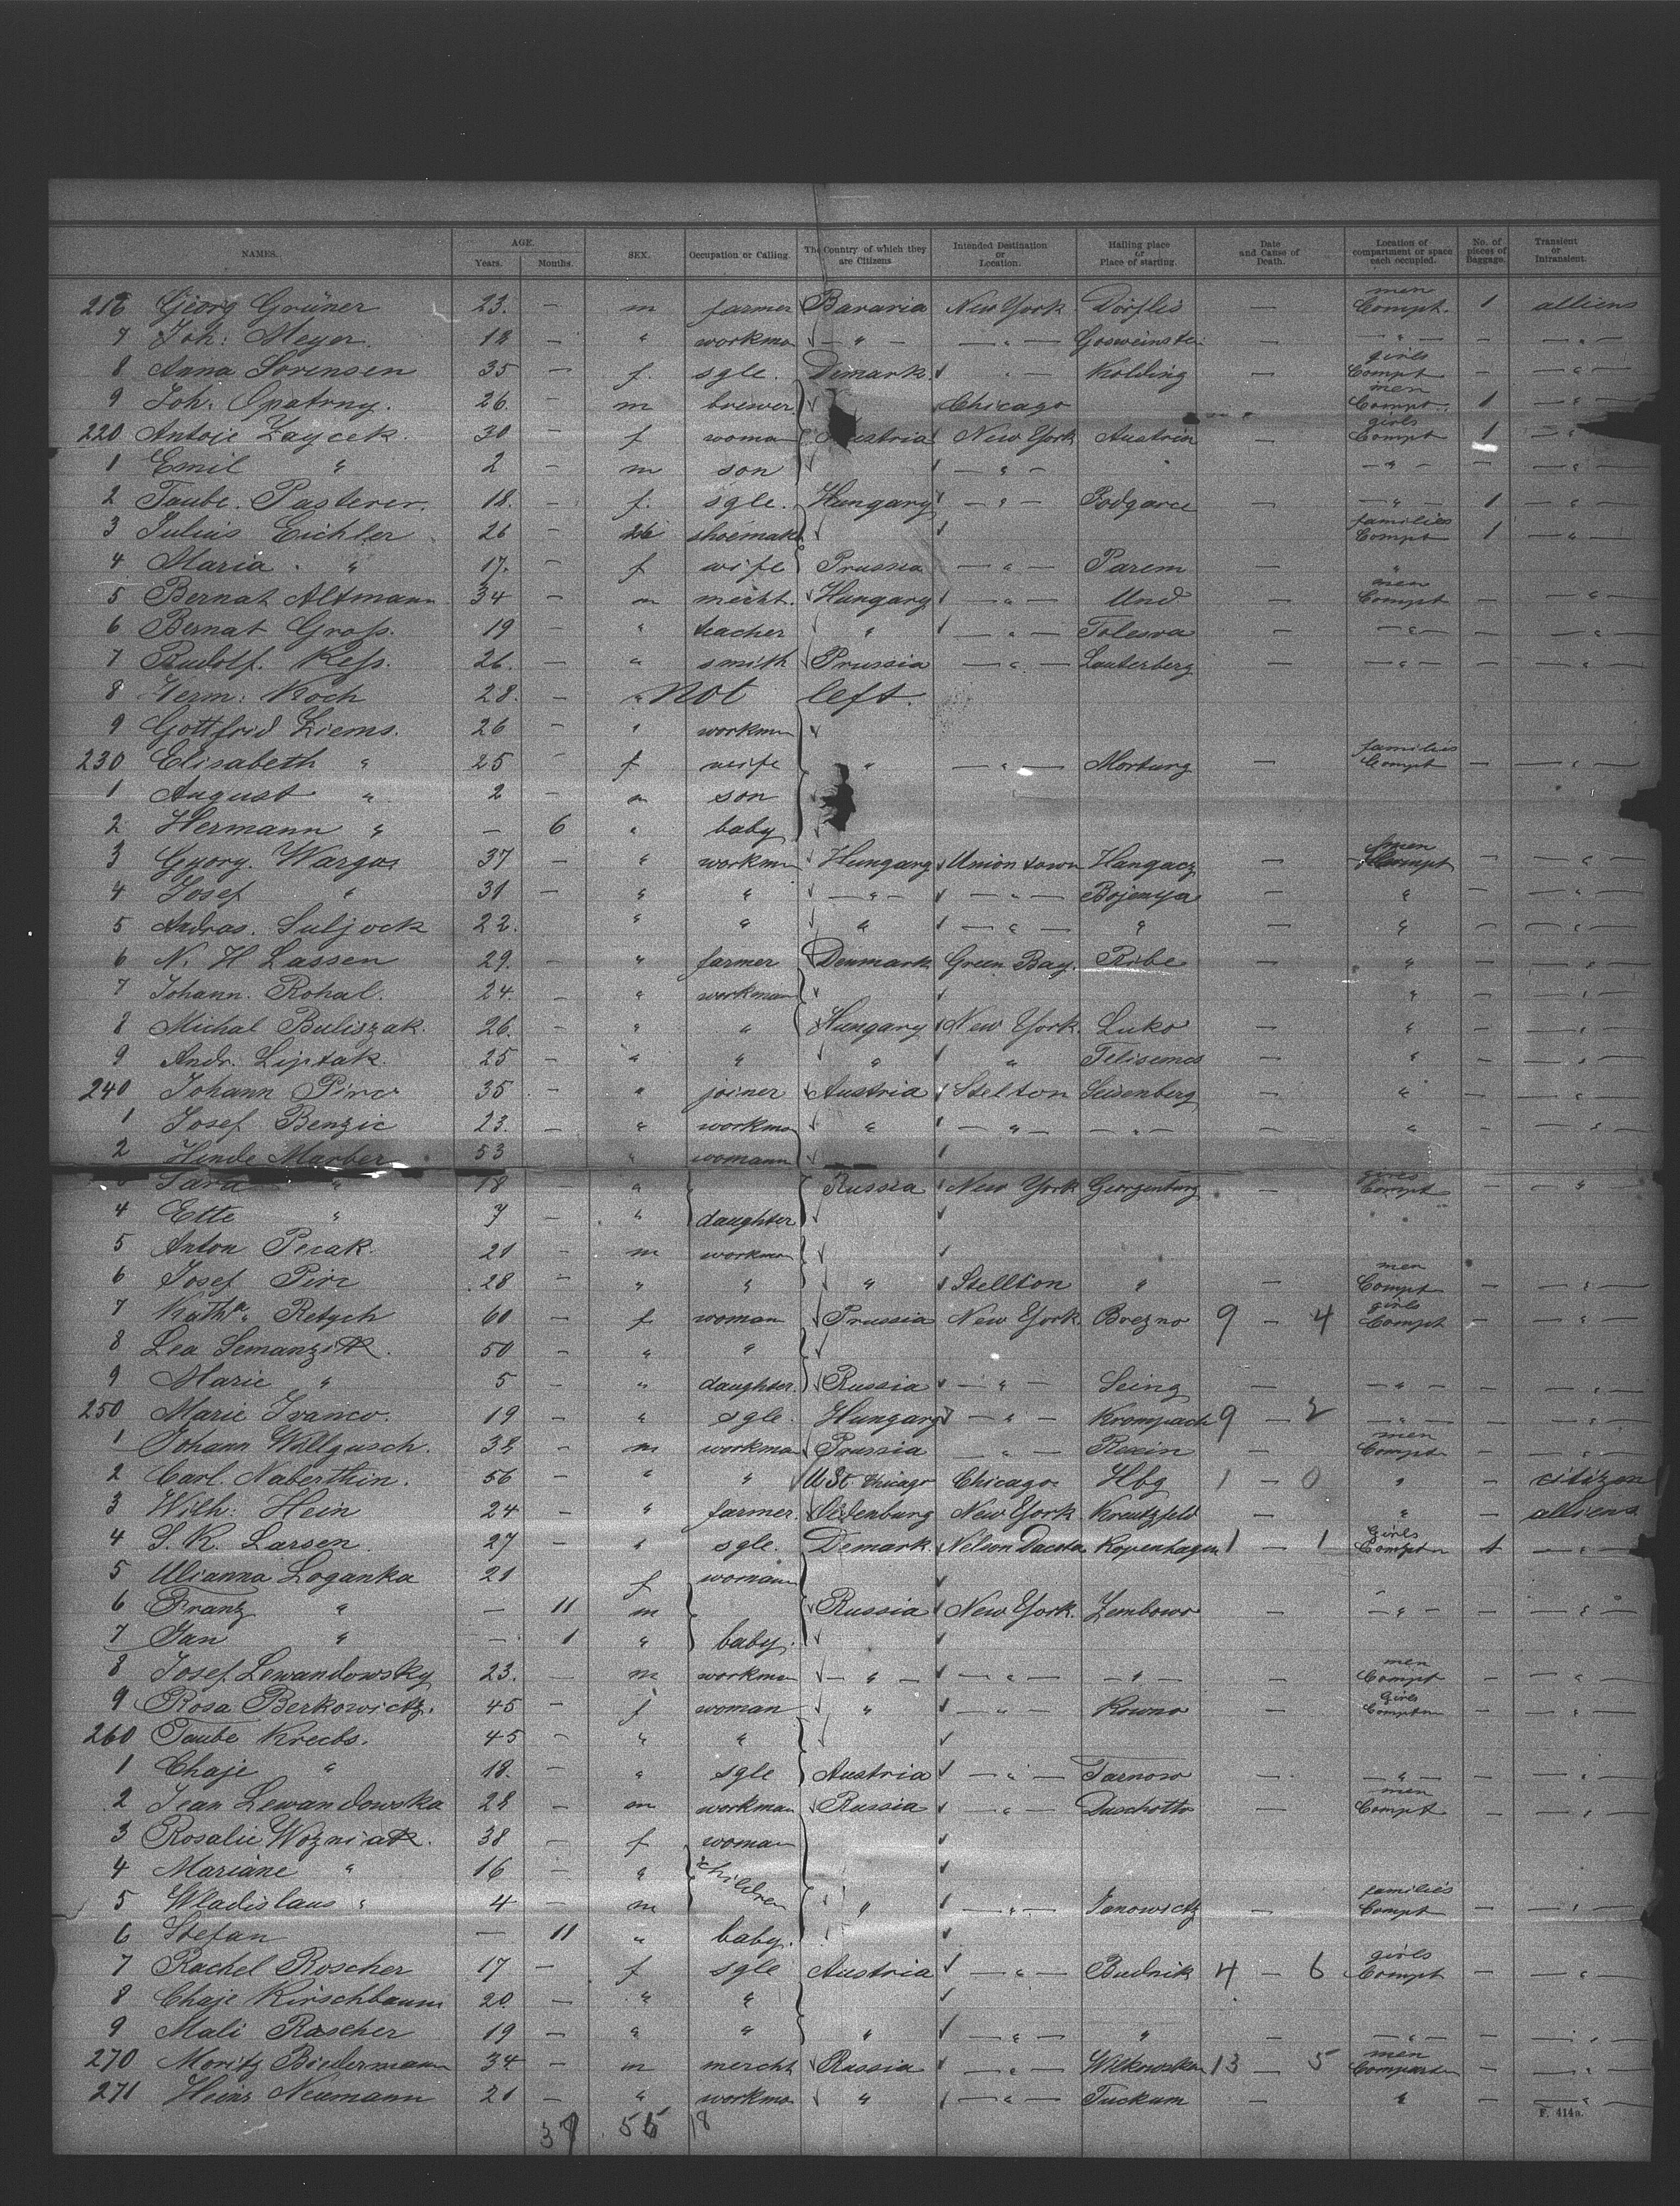 NAMES. AGE. Years. Months. SEX. Occupation or Calling. The Country of which they are Citizens Intended Destination or Location. Hailing place or Place of starting. Date and Cause of Death. Location of compartment or space each occupied. No. of pieces of Baggage. Transient or Intransient.
216 Georg Grüner 23. — m farmer Bavaria New York Dörflis — men Compt. 1 alliens
7 Joh: Meyer. 18 — " workmn — " — — " — Gosweinstein — — " — — — " —
8 Anna Sorensen 35 — f. sgle. Demark. " — Kolding — girls Compt — — " —
9 Joh: Opatrny. 26. — m brewer Chicago men Compt. 1 — " —
220 Antoje Zaycek. 30 — f woman Austria New York Austria — girls Compt 1 — "
1 Emil " 2 — m son — " — " — " — — — " —
2 Taube. Pasterer. 18. — f. sgle. Hungary — " — Podgarce — — " — 1 — " —
3 Julius Eichler 26 — 26 shoemak families Compt 1 — " —
4 Maria " 17. — f wife Prussia — " — Parem — "
5 Bernat Altmann 34 — m mercht. Hungary — " — Und — men Compt — — " —
6 Bernat Groß. 19 — " teacher " — " — Tolesva — — " — — — " —
7 Rudolf. Keß. 26. — " smith Prussia — " — Lauterberg — — " — — — " —
8 Herm: Koch 28. — " not left.
9 Gottfrid Ziems. 26 — " workmn
230 Elisabeth " 25 — f wife " — " — Morburg — families Compt — — " —
1 August " 2 — m son
2 Hermann " — 6 " baby
3 Gyorg. Wargas 37 — " workmn Hungary Union town Hangacz — men Compt — — " —
4 Josef " 31 — " " — " — — " — Bojemya — " — — " —
5 Andras. Suljock 22. " " " — " — " — " — — " —
6 N. H Lassen 29. — " farmer Denmark Green Bay. Ribe — " — — " —
7 Johann. Rohal. 24. — " workman " — — " —
8 Michal Buliszak. 26. — " " Hungary New York. Luko — " — — " —
9 Andr. Liptak. 25 — " " " " Telisemes — " — — " —
240 Johann Pirc 35 — " joiner Austria Stelton Seisenberg — " — — " —
1 Josef Benzic 23. — " workmn " — " — — " — — " — — " —
2 Hinde Marber 53 " womann
3 Sara " 18 — " Russia New York Georgenburg — girls Compt — "
4 Ette " 7 — " daughter
5 Anton Pecak. 21 — m workmn
6 Josef Pirc 28 — " " " Stellton " — men Compt — — " —
7 Kath. Retych 60 — f woman Prussia New York Brezno 9 — 4 girls Compt — — " —
8 Lea Semanzik. 50 — " "
9 Marie " 5 — " daughter. Russia — " — Seing — — " — — — " —
250 Marie Ivanco. 19 — " sgle. Hungary — " — Krompach 9 — 2 — " — — — " —
1 Johann Wellgusch. 38 — m workmn Prussia — " — Rexin — men Compt — — " —
2 Carl. Naberthin. 56 — " " U St Chicago Chicago. Hbg 1 — 0 " — citizen
3 Wilh: Hein 24 — " farmer. Oldenburg New York Kreutzfeld " — alliens
4 S. R. Larsen. 27 — " sgle. Demark. Nelson Dacota Kopenhagen 1 — 1 Girls Compt 1 — " —
5 Ulianna Loganka 21 f womann
6 Frantz " — 11 m Russia New York. Zembowo — — " — — — " —
7 Jan " — 1 " baby.
8 Josef Lewandowsky 23. — m workmn — " — — " — — " — — men Compt — — "
9 Rosa Berkowicz. 45 — f woman " — " — Kowno — Girls Compt — — " —
260 Taube Krecbs. 45 — " "
1 Chaje " 18. — " sgle Austria — " — Tarnow — — " — — — " —
2 Jean Lewandowska 28 — m workman Russia — " — Duschotto — men Compt — — " —
3 Rosalie Wozniak. 38 — f woman
4 Mariane " 16 — " children
5 Wladislaus " 4 — m " — " — Janowictz — families Compt — — " —
6 Stefan — 11 " baby.
7 Rachel Roscher 17 — f sgle Austria — " — Budnik 4 — 6 girls Compt — — " —
8 Chaje Kirschbaum 20. — " "
9 Mali Rascher 19 — " " " — " — " — — " — — — " —
270 Moritz Biedermann 34 — m mercht Russia — " — Wilkowska 13 — 5 men Compart — — " —
271 Heinr Neumann 21 — " workmn " — " — Tuckum — " — — " —
37 55 18
F. 414a.